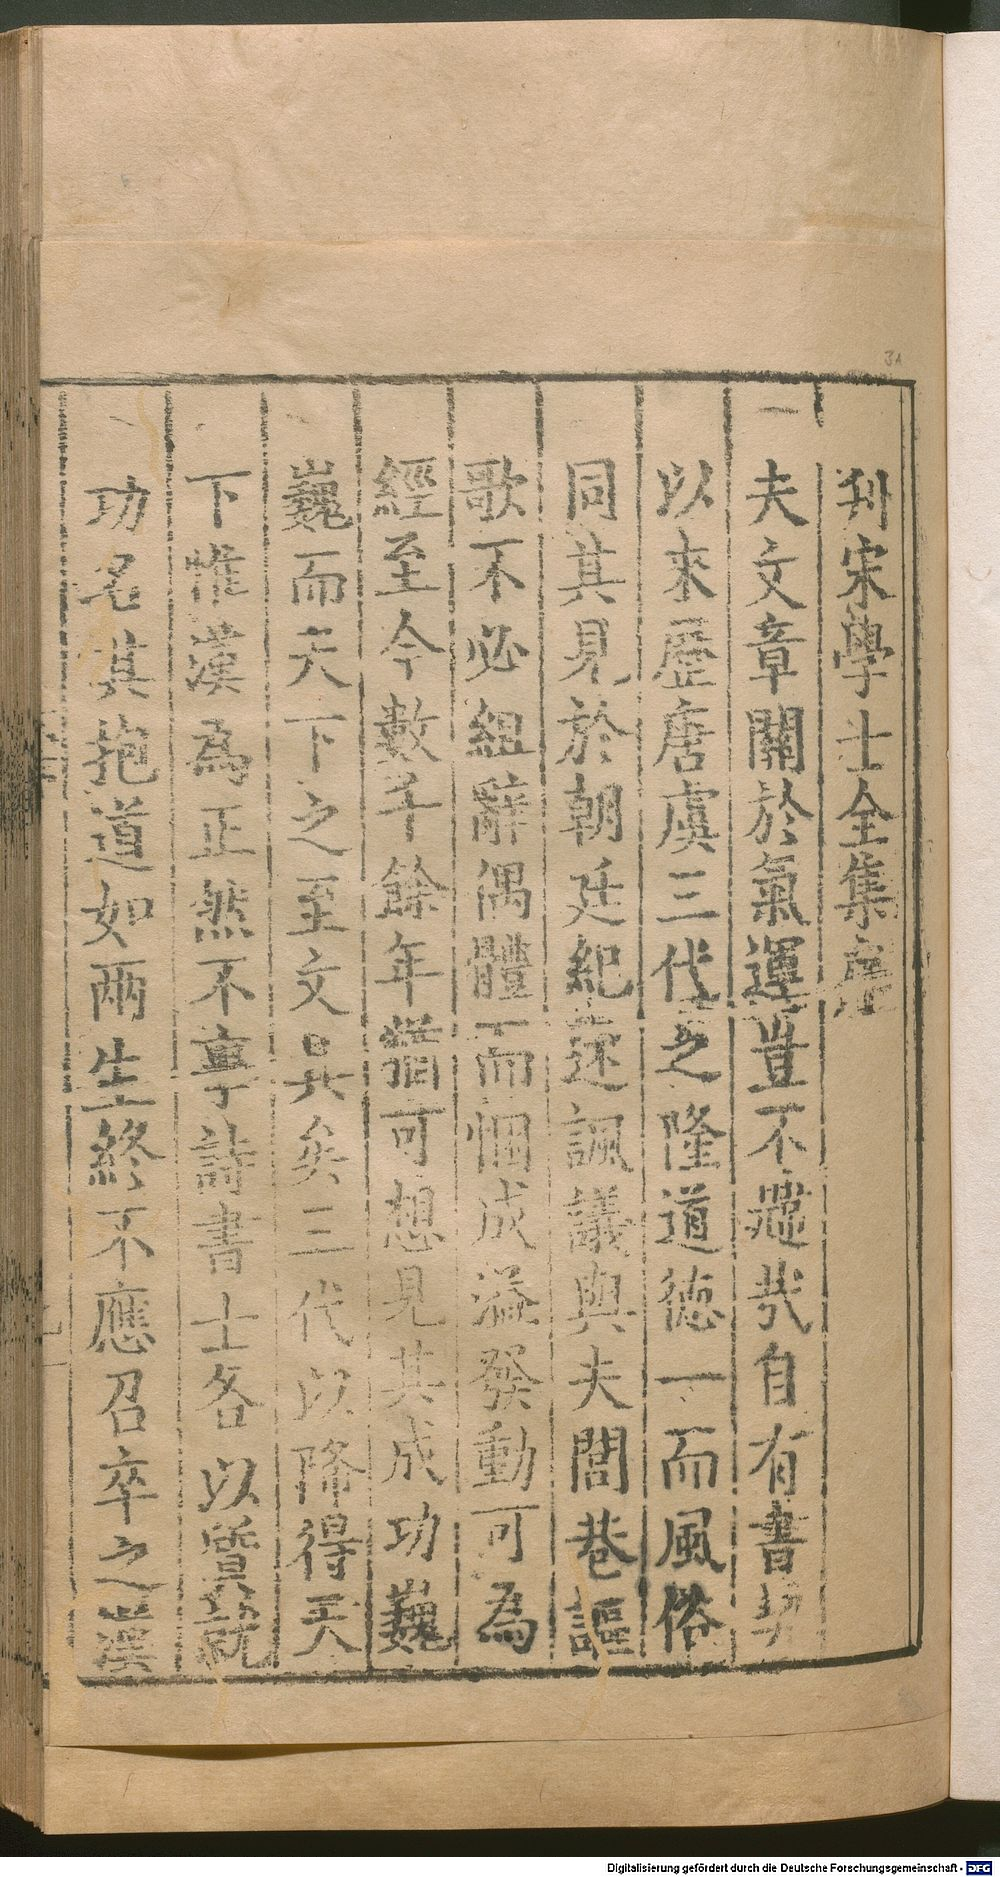 刋宋學士全集序
夫文章關於氣運豈不諠哉自有書契
以來歷唐虞三代之隆道德一而風俗
同其見於朝廷紀述諷議與夫閭巷謳
歌不必組辭偶體而悃成溢發動可為
經至今數千餘年猶可想見其成功巍
巍而天下之至文具矣三代以降得天
下惟漢為正然不事詩書士各以質就
功名其抱道如兩生終不應召卒之漢
31
Digitalisierung gefördert durch die Deutsche Forschungsgemeinschaft - DFG